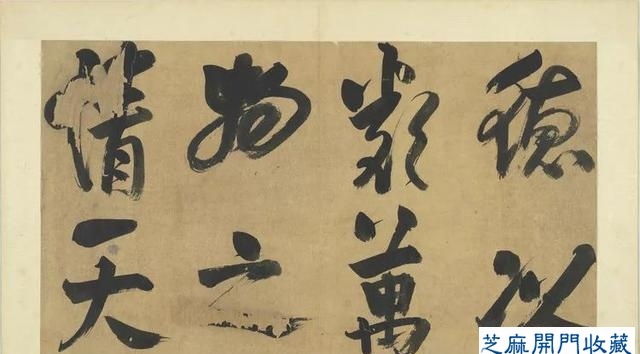 德以
類萬
物之
情天
芝麻開門收藏